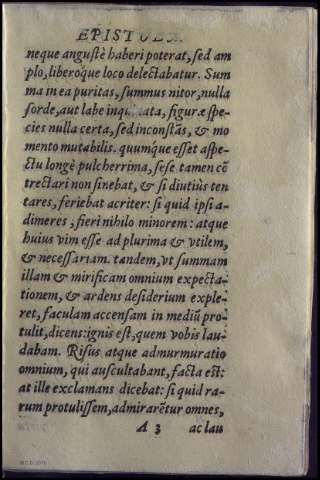 EPISTOLA
neque angustè haberi poterat, sed am
plo, liberoq́ue loco delectabatur. Sum
ma in ea puritas, summus nitor, nulla
sorde, aut labe inquinata, figuræ spe-
cies nulla certa, sed incõstãs, & mo
mento mutabilis. quumq́ue esset aspe-
ctu longè pulcherrima, sese tamen cõ
trectari non sinebat, & si diutiùs ten
tares, feriebat acriter: si quid ipsi a-
dimeres, fieri nihilo minorem: atque
huius vim esse ad plurima & vtilem,
& necessariam. tandem, vt summam
illam & mirificam omnium expecta-
tionem, & ardens desiderium exple-
ret, faculam accensam in mediũ pro-
tulit, dicens: ignis est, quem vobis lau-
dabam. Risus atque admurmuratio
omnium, qui auscultabant, facta est:
at ille exclamans dicebat: si quid ra-
rum protulissem, admirarẽtur omnes,
A 3 ac lau